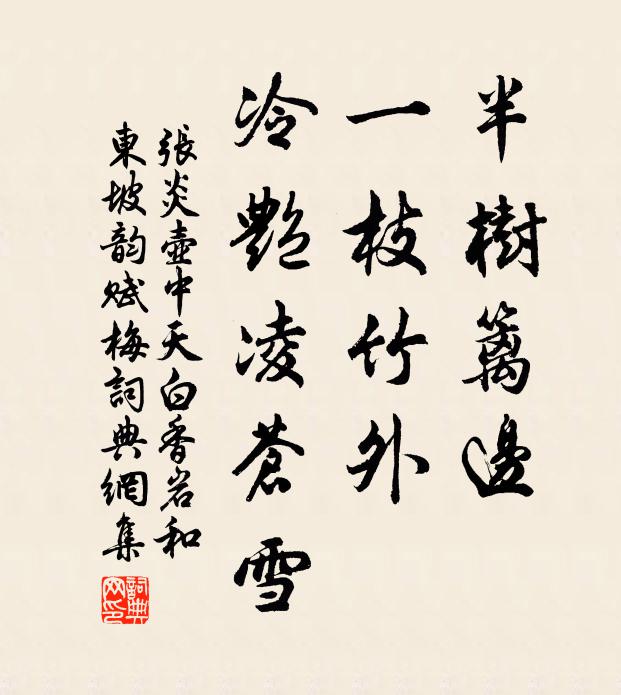 半樹籬邊
一枝竹外
冷艷凌蒼雪
張炎壺中天白香岩和
東坡韵賦梅詞典網集
詞典網印